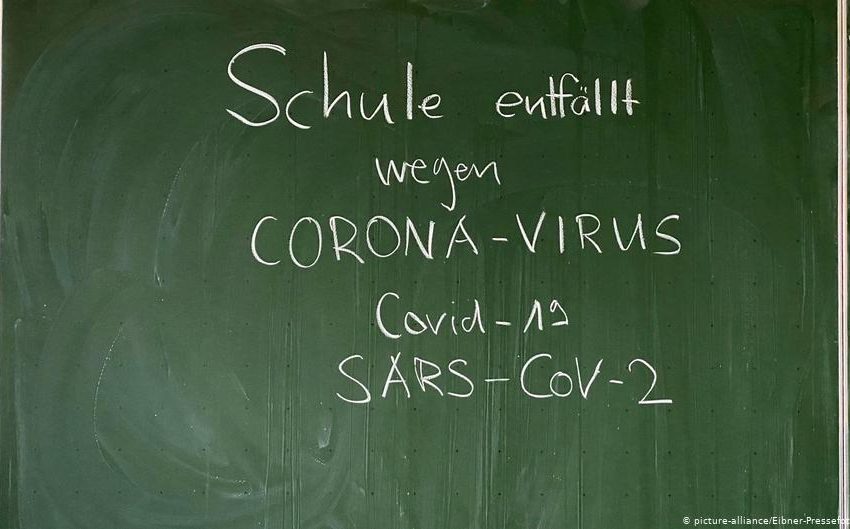 Schule entfällt
wegen
CORONA-VIRUS
Covid-19
SARS-CoV-2
© picture-alliance/Eibner-Pressefot